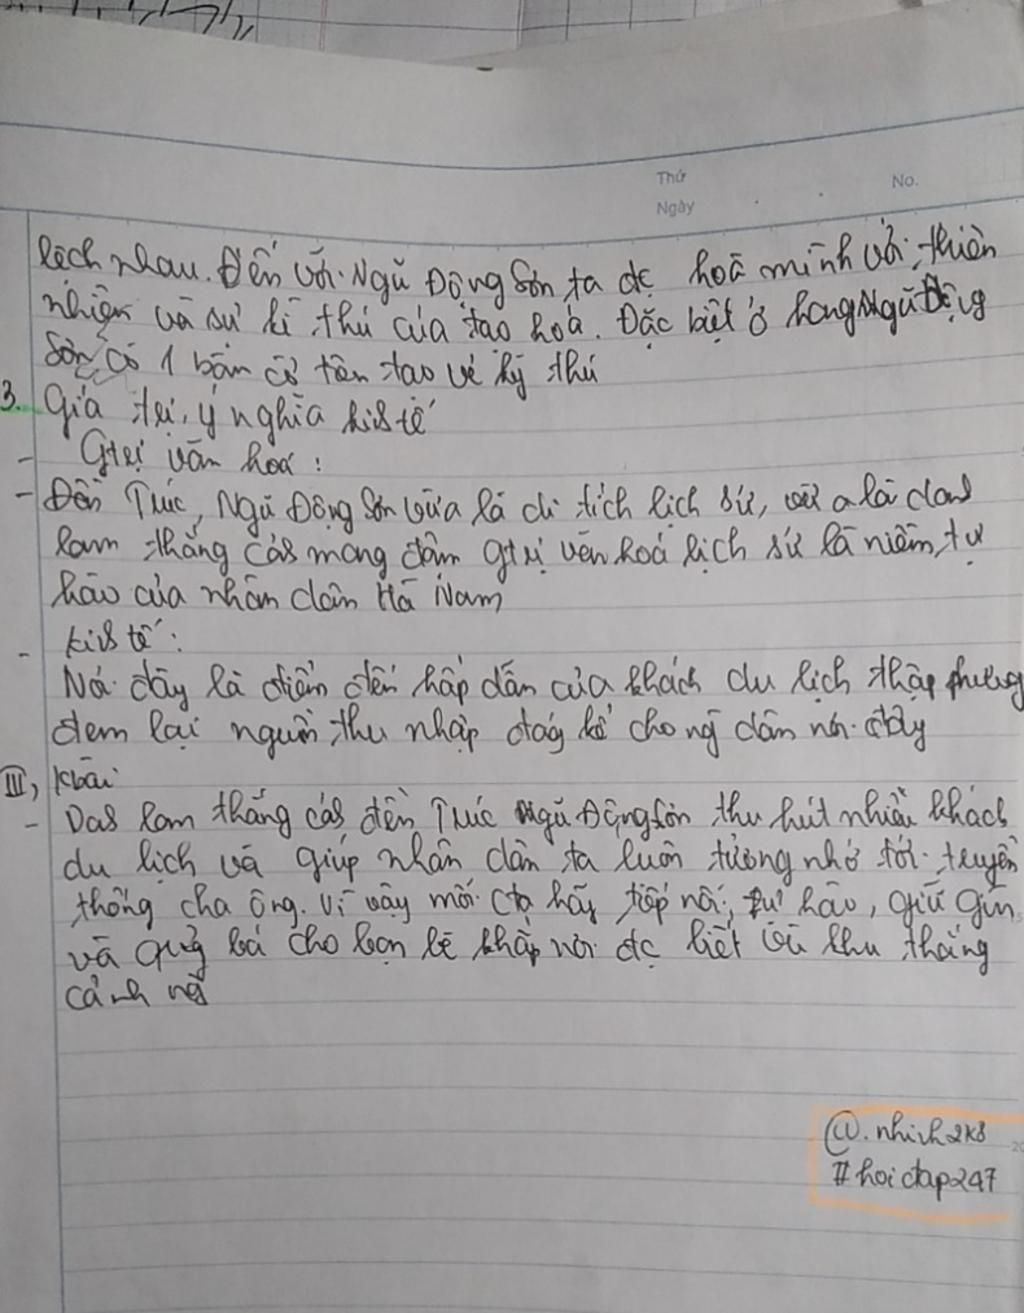 Thứ
No.
Ngày
lệch nhau. Đến với Ngũ Động Sơn ta đc hoà mình với thiên
nhiên và sự kì thú của tạo hoá. Đặc biệt ở hang Ngũ Động
Sơn có 1 bàn cờ tiên tạo vẻ kỳ thú
3. Giá trị, ý nghĩa kinh tế
- Gtrị văn hoá :
- Đền Trúc, Ngũ Động Sơn vừa là di tích lịch sử, vừa là danh
lam thắng cảnh mang đậm gtrị văn hoá lịch sử là niềm tự
hào của nhân dân Hà Nam
- kinh tế :
Nơi đây là điểm đến hấp dẫn của khách du lịch thập phương
đem lại nguồn thu nhập đáng kể cho ng dân nơi đây
III, Kbài
- Danh lam thắng cảnh đền Trúc Ngũ Động Sơn thu hút nhiều khách
du lịch và giúp nhân dân ta luôn tưởng nhớ tới truyền
thống cha ông. Vì vậy mỗi cta hãy tiếp nối, tự hào, giữ gìn
và quảng bá cho bạn bè khắp nơi đc biết về khu thắng
cảnh này
@.nhinh2k8
#hoidap247